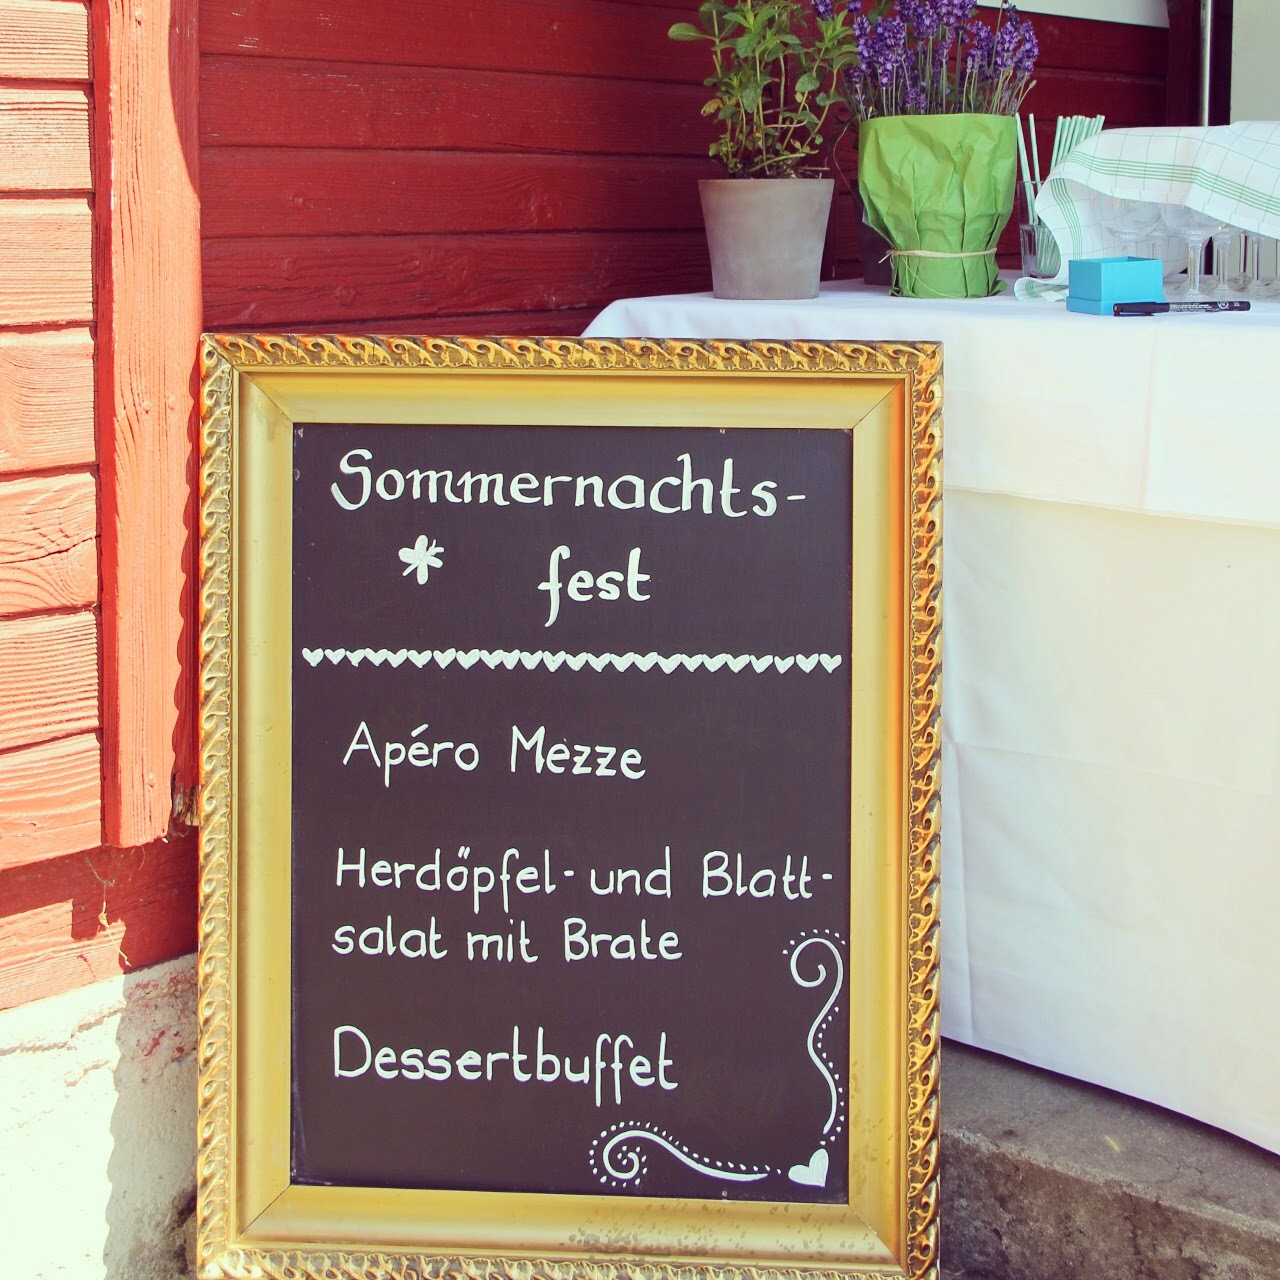 Sommernachts-
fest
Apéro Mezze
Herdöpfel- und Blatt-
salat mit Brate
Dessertbuffet